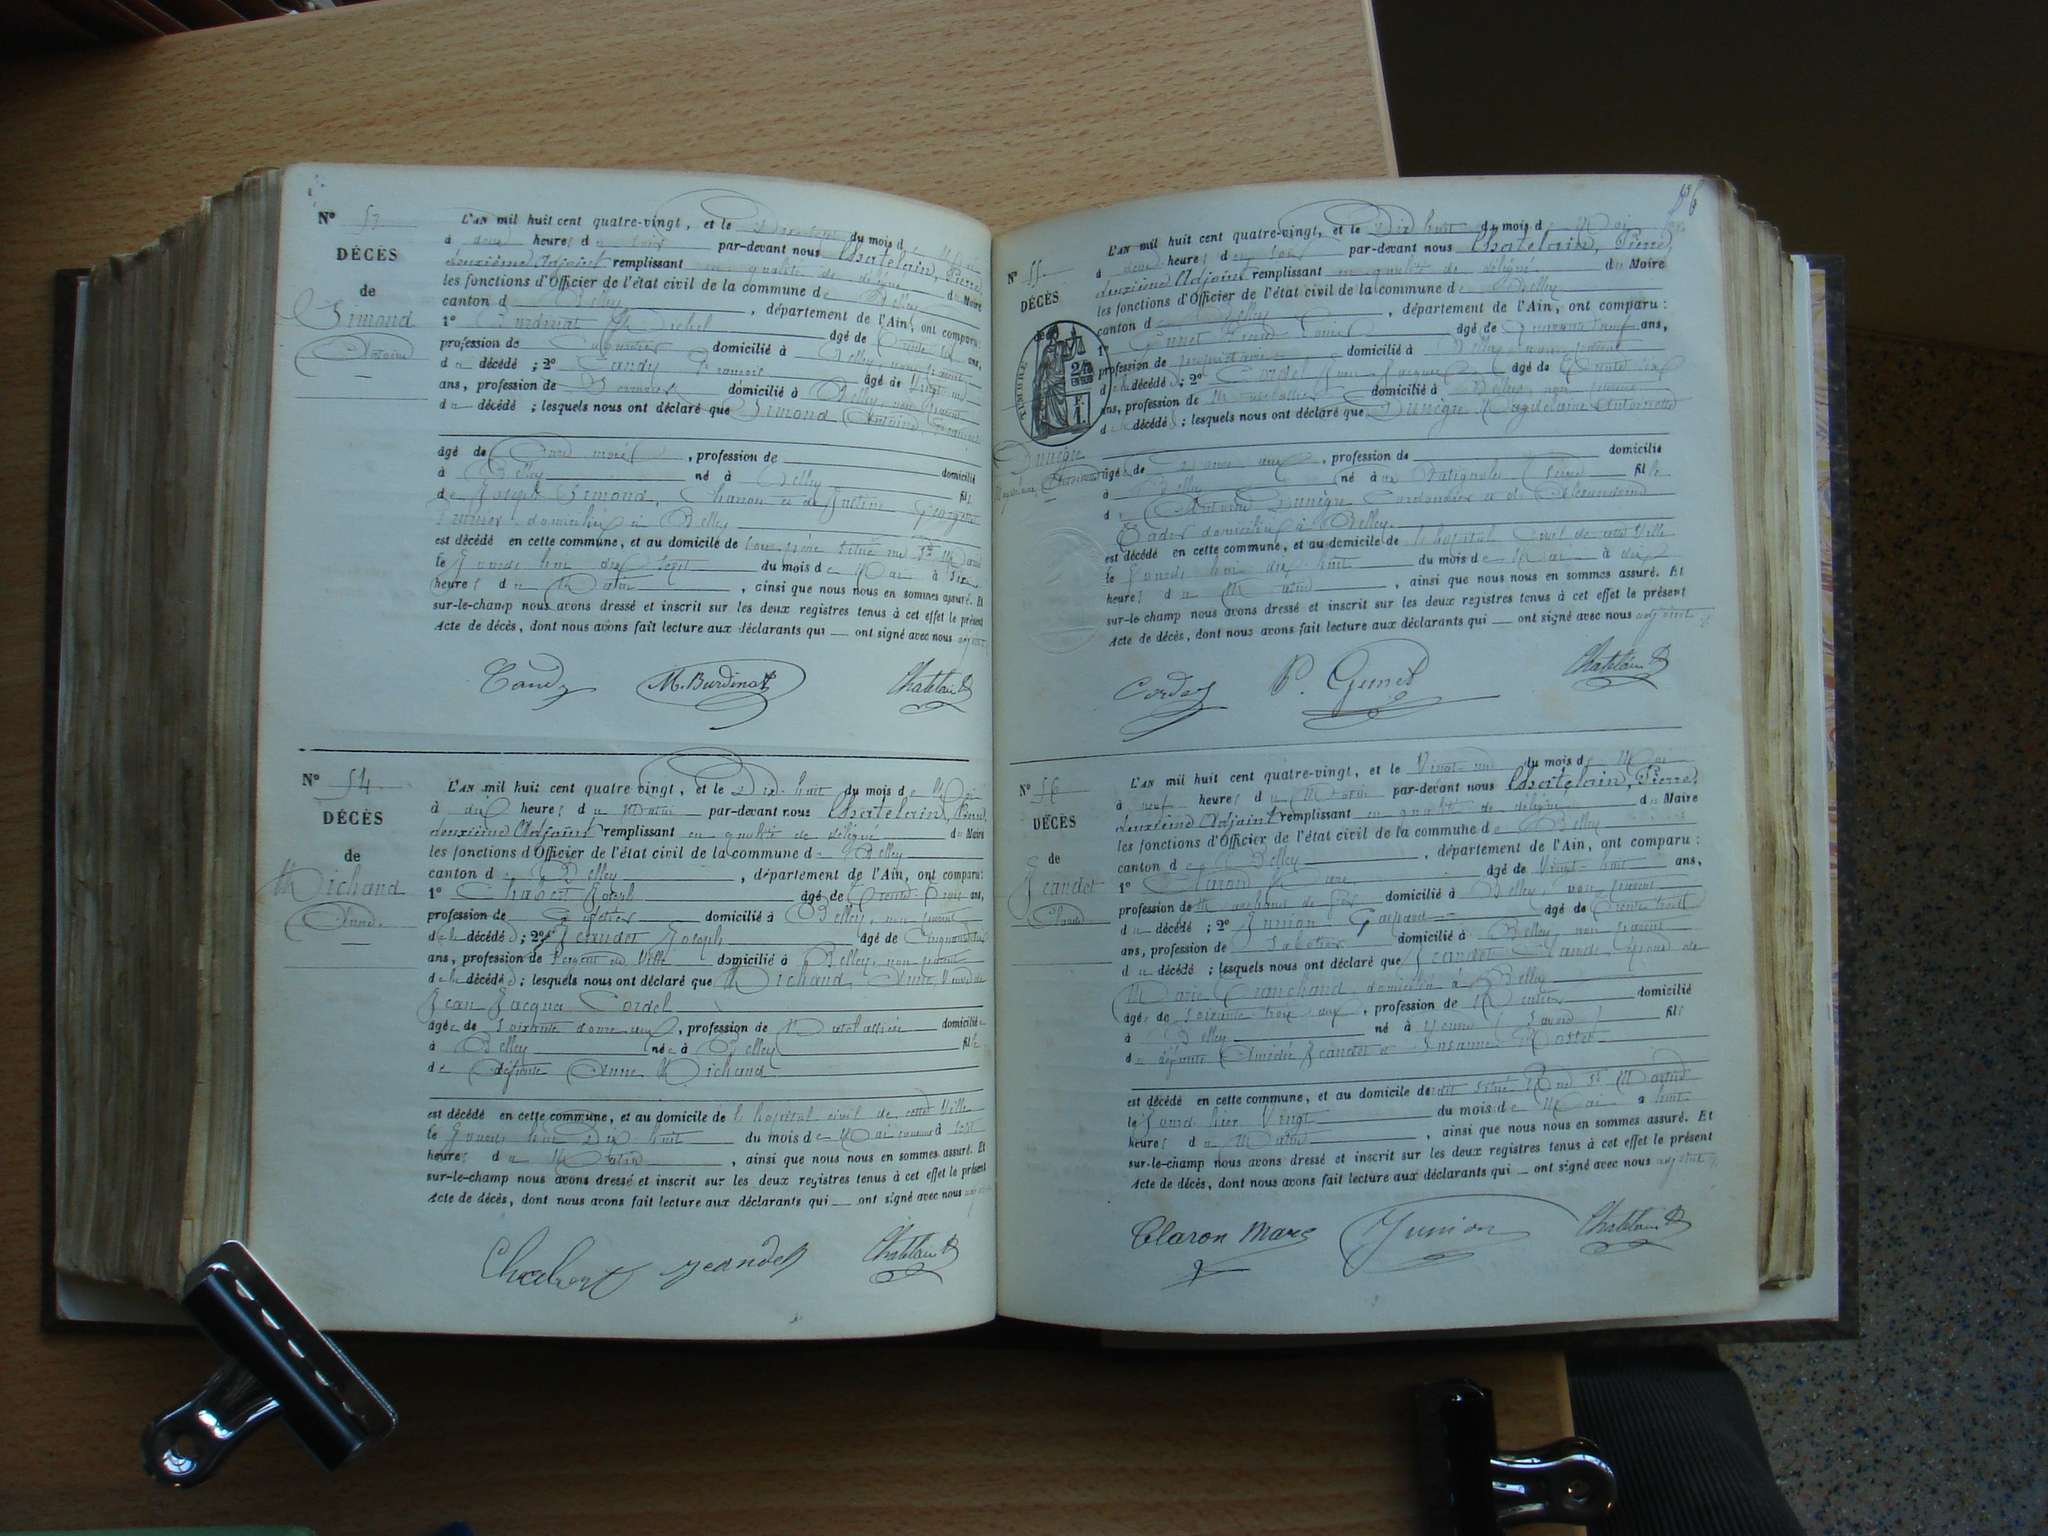 N° 53
DÉCÈS
de
Simond
Antoine
L'AN mil huit cent quatre-vingt, et le du mois de Mai
à deux heures du soir par-devant nous Chatelain, Pierre,
deuxième Adjoint remplissant en qualité de délégué du Maire
les fonctions d'Officier de l'état civil de la commune de Belley
canton de Belley, département de l'Ain, ont comparu:
1° Burdinat Michel âgé de ans,
profession de domicilié à Belley, non parent
du décédé; 2° Tandy François âgé de vingt
ans, profession de domicilié à Belley, non parent
du décédé; lesquels nous ont déclaré que Simond Antoine,
âgé de mois, profession de domicilié
à Belley né à Belley fils
de Joseph Simond, et de Justine
domiciliés à Belley
est décédé en cette commune, et au domicile de son père situé rue St Martin
le jourd'hui dix sept du mois de Mai à six
heures du Matin, ainsi que nous nous en sommes assuré. Et
sur-le-champ nous avons dressé et inscrit sur les deux registres tenus à cet effet le présent
Acte de décès, dont nous avons fait lecture aux déclarants qui ont signé avec nous adjoint
M. Burdinat Chatelain P
N° 54
DÉCÈS
de
Michaud
Anne
L'AN mil huit cent quatre-vingt, et le Dix huit du mois de Mai
à dix heures du Matin par-devant nous Chatelain, Pierre,
deuxième Adjoint remplissant en qualité de délégué du Maire
les fonctions d'Officier de l'état civil de la commune de Belley
canton de Belley, département de l'Ain, ont comparu:
1° Chabert Joseph âgé de trente trois ans,
profession de domicilié à Belley, non parent
de la décédée; 2° Jeandet Joseph âgé de Cinquante
ans, profession de Sergent de Ville domicilié à Belley, non parent
de la décédée; lesquels nous ont déclaré que Michaud Anne, Veuve de
Jean Jacques Cordel
âgée de soixante douze ans, profession de Matelassière domiciliée
à Belley née à Belley fille
de défunte Anne Michaud
est décédé en cette commune, et au domicile de l'hôpital civil de cette Ville
le jourd'hui Dix huit du mois de Mai courant à sept
heures du Matin, ainsi que nous nous en sommes assuré. Et
sur-le-champ nous avons dressé et inscrit sur les deux registres tenus à cet effet le présent
Acte de décès, dont nous avons fait lecture aux déclarants qui ont signé avec nous
Chabert Jeandet Chatelain P
N° 55
DÉCÈS
de
TIMBRE
Dunègre
Magdelaine Antoinette
L'AN mil huit cent quatre-vingt, et le Dix huit du mois de Mai
à deux heures du soir par-devant nous Chatelain, Pierre,
deuxième Adjoint remplissant en qualité de délégué du Maire
les fonctions d'Officier de l'état civil de la commune de Belley
canton de Belley, département de l'Ain, ont comparu:
1° âgé de Quarante neuf ans,
profession de propriétaire domicilié à Belley, non parent
de la décédée; 2° Cordel Jean Jacques âgé de trente six
ans, profession de Matelassier domicilié à Belley, non parent
de la décédée; lesquels nous ont déclaré que Dunègre Magdelaine Antoinette
âgée de ans, profession de domicilié
à Belley née à Batignoles (Seine) fille
de Antoine Dunègre Cordonnier et de Alexandrine
domiciliés à Belley.
est décédé en cette commune, et au domicile de l'hôpital Civil de cette Ville
le jourd'hui dix huit du mois de Mai à dix
heures du Matin, ainsi que nous nous en sommes assuré. Et
sur-le-champ nous avons dressé et inscrit sur les deux registres tenus à cet effet le présent
Acte de décès, dont nous avons fait lecture aux déclarants qui ont signé avec nous adjoint
Cordel Chatelain P
N° 56
DÉCÈS
de
Jeandet
Claude
L'AN mil huit cent quatre-vingt, et le Vingt-un du mois de Mai
à neuf heures du Matin par-devant nous Chatelain, Pierre,
deuxième Adjoint remplissant en qualité de délégué du Maire
les fonctions d'Officier de l'état civil de la commune de Belley
canton de Belley, département de l'Ain, ont comparu:
1° Claron Marc âgé de Vingt-huit ans,
profession de Marchand de fer domicilié à Belley, non parent
du décédé; 2° Junion Gaspard âgé de trente huit
ans, profession de Sabotier domicilié à Belley, non parent
du décédé; lesquels nous ont déclaré que Jeandet Claude, époux de
Marie domicilié à Belley
âgé de soixante trois ans, profession de Rentier domicilié
à Belley né à Yenne (Savoie) fils
de défunts Jeandet et Susanne
est décédé en cette commune, et au domicile dudit situé Rue St Martin
le jourd'hier Vingt du mois de Mai à huit
heures du Matin, ainsi que nous nous en sommes assuré. Et
sur-le-champ nous avons dressé et inscrit sur les deux registres tenus à cet effet le présent
Acte de décès, dont nous avons fait lecture aux déclarants qui ont signé avec nous adjoint
Claron Marc Junion Chatelain P